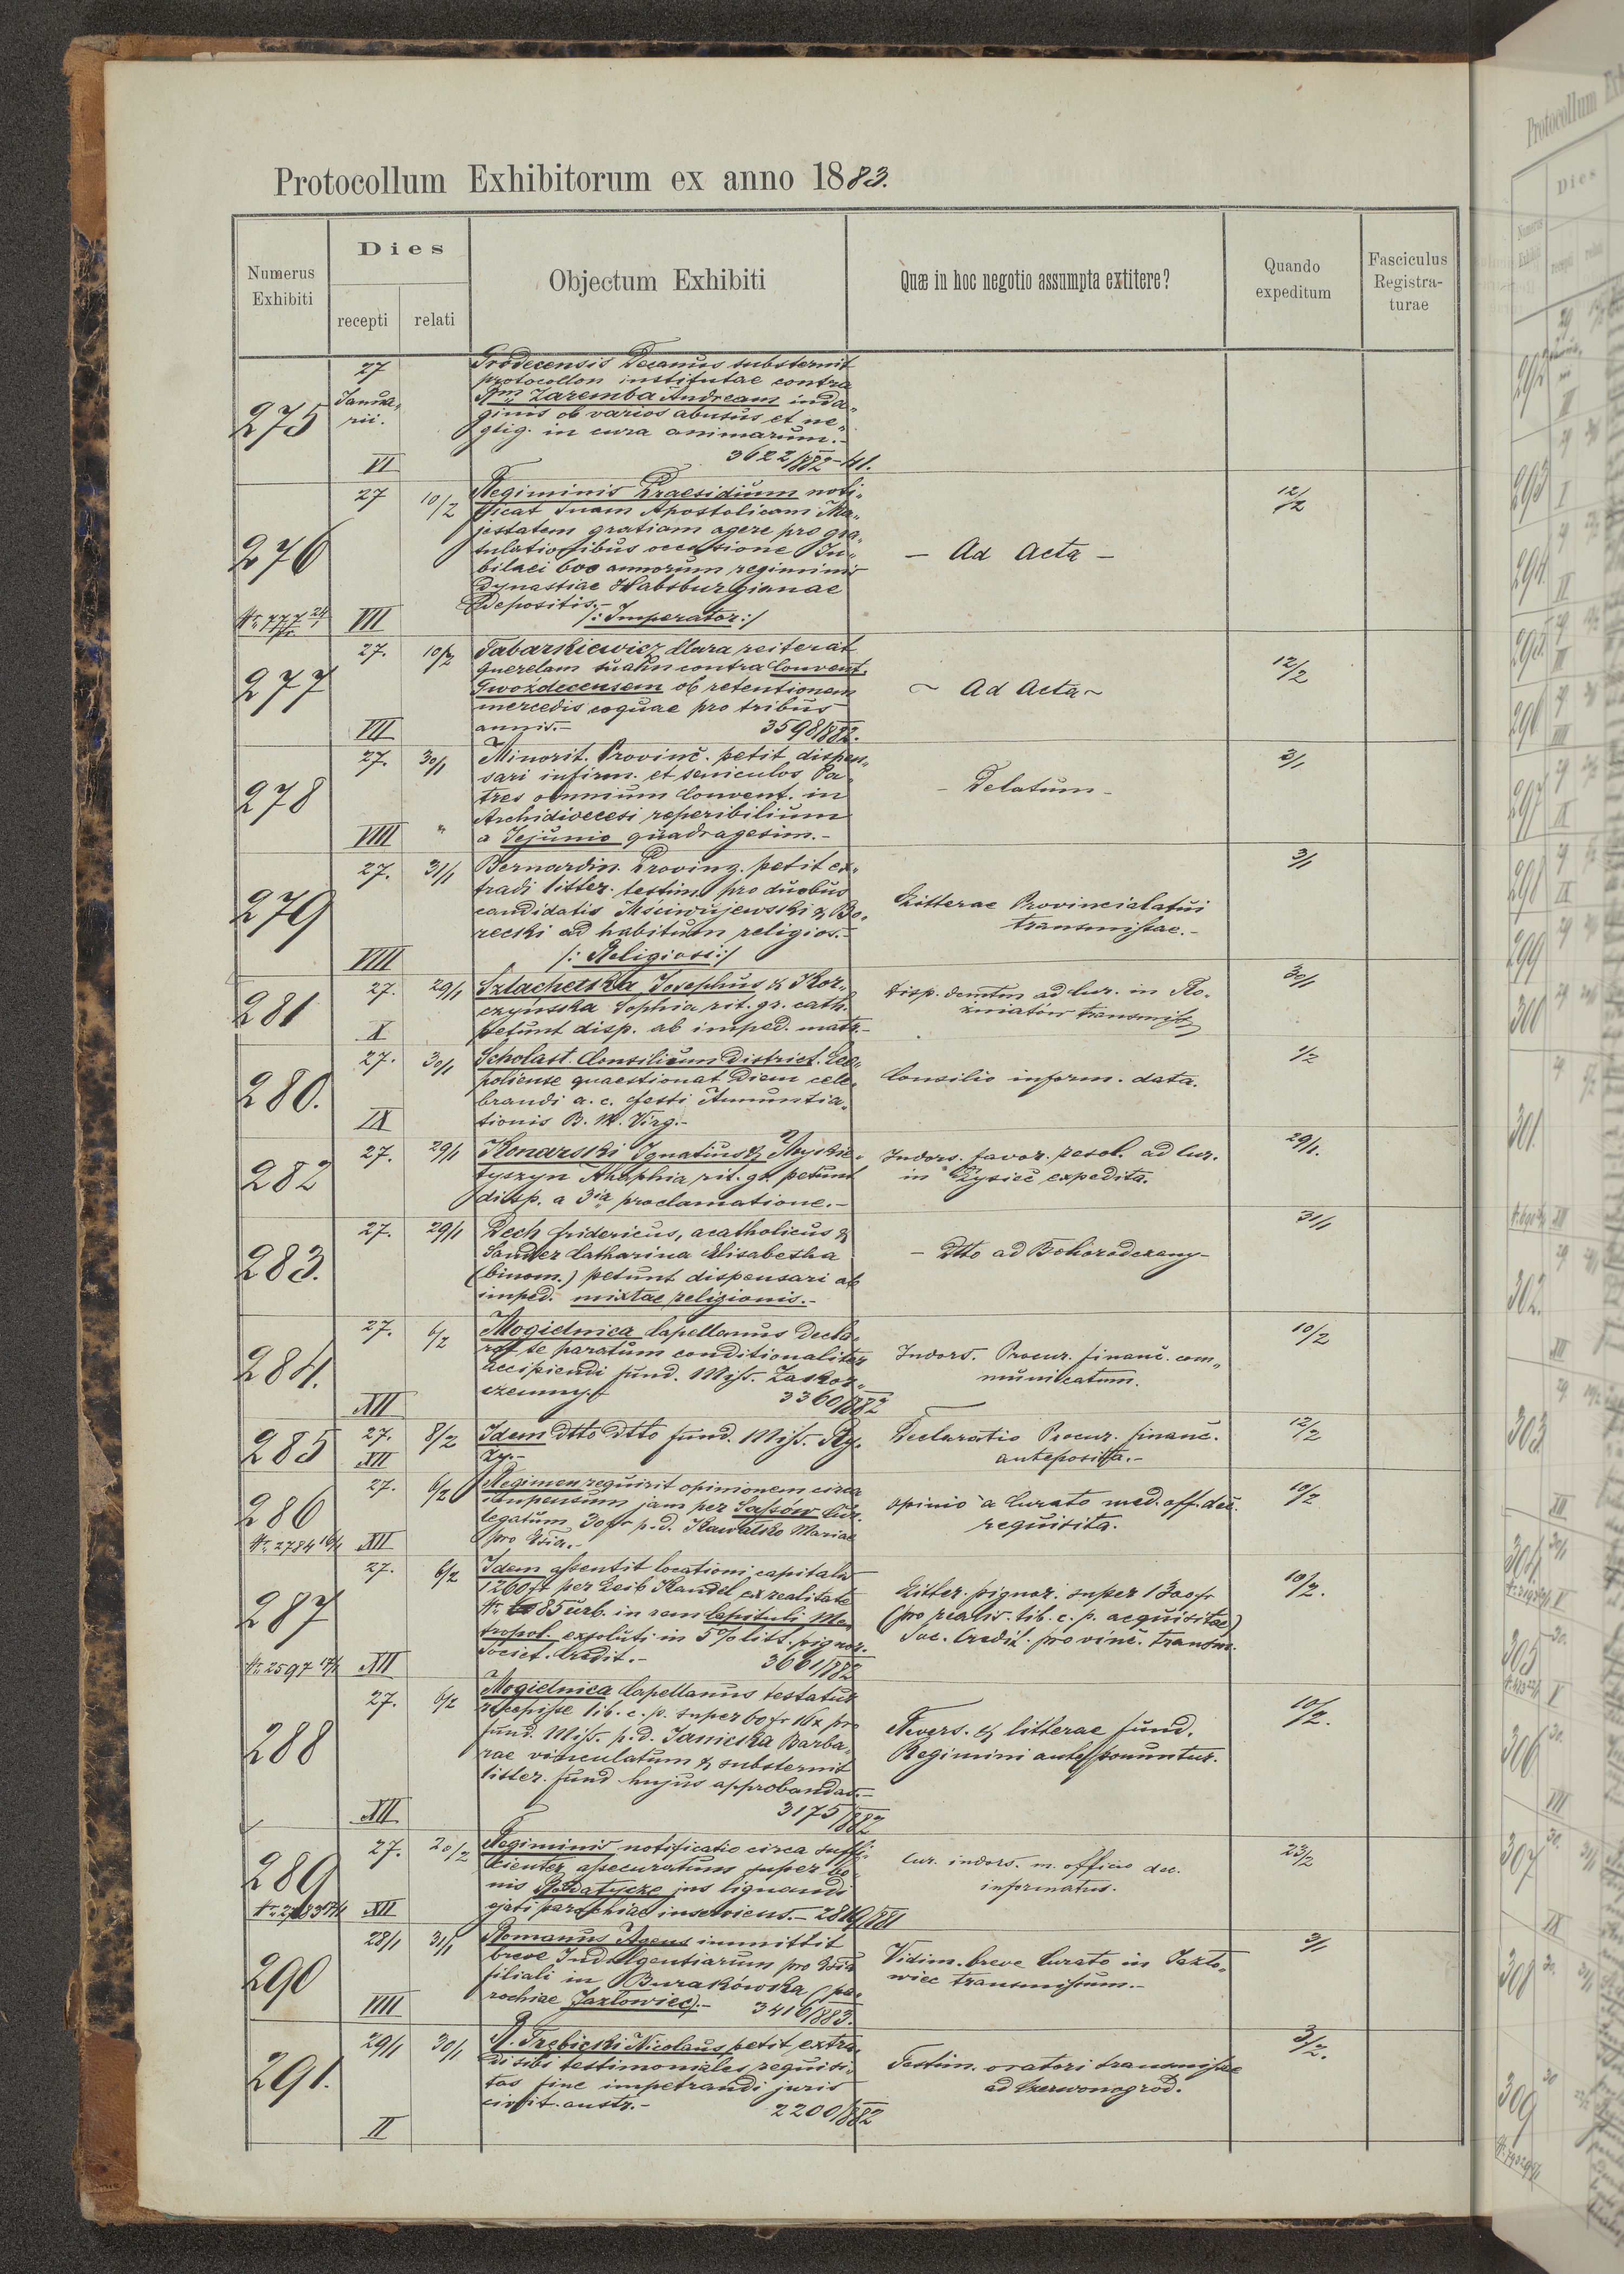 Protocollum Exhibitorum ex anno 1883.
Numerus Exhibiti
Dies
recepti relati
Objectum Exhibiti
Quæ in hoc negotio assumpta extitere?
Quando expeditum
Fasciculus Registra-
turae
275
27
Janua„
rii.
VI
Grodecensis Decanus substernit
protocollon institutae contra
Rm Zaremba Andream inda„
ginis ob varios abusus et ne„
glig. in cura animarum.-
3622/882-141.
276
27 10/2
Regiminis Praesidium noti„
ficat Suam Apostolicam Ma„
jestatem gratiam agere pro gra„
tulationibus occasione Ju„
bilaei 600 annorum regiminis
Dynastiae Habsburgianae
depositis.-
/:Imperator:/
- Ad Acta -
12/2
VII
277
27. 10/2
Tabarkiewicz Clara reiterat
querelam suam contra Convent.
Gwoździecensem ob retentionem
mercedis coquae pro tribus
annis.- 3598/882.
~ Ad Acta ~
12/2
VII
278
27. 30/1
Minorit. Provinč. petit dispen„
sari infirm. et seniculos Pa„
tres omnium Convent. in
Archidiocesi reperibilium
a Jejunio quadragesim.-
- Delatum -
3/1
VIII "
279
27. 31/1
Bernardin. Provinz. petit ex„
tradi litter. testim. pro duobus
candidatis Mściwujewski & Bo„
recki ad habitum religios.-
/:Religiosi:/
Litterae Provincialatui
transmissae.-
3/1
VIII
281
27. 29/1
X
Szlachetska Josephus & Kor„
czyńska Sophia rit. gr. cath.
petunt disp. ab imped. matr.-
Disp. demtm ad Cur. in Ro„
żniatów transmiss.
30/1
280.
27. 30/1
Scholast. Consilium District. Leo„
poliense quaestionat Diem cele„
brandi a. c. festi Annuntia„
tionis B. M. Virg.-
Consilio inform. data.
1/2
IX
282
27. 29/1
Konarski Ignatius &
tyszyn rit. gr. petunt
disp. a 3ia proclamatione.-
Indors. favor. resol. ad Cur.
in Łysieč expedita.
29/1.
283.
27. 29/1
Dech fridericus, acatholicus &
Sander Catharina Elisabetha
(binom.) petunt dispensari ab
imped. mixtae religionis.-
- Dtto ad Bohorodczany -
31/1
284.
27. 6/2
Mogielnica Capellanus Decla„
rat se paratum conditionaliter
accipiendi fund. Miss. Zaskor„
czemny.- 3360/882
Indors. Procur. financ. com„
municatum.
10/2
XII
285
27. 8/2
XII
Idem dtto dtto fund. Miss. Ry„
zy.-
Declaratio Procur. financ.
anteposita.-
12/2
286
27. 6/2
Regimen requirit opinionem circa
impensum jam per Sassów Cur.
legatum 30 fr p. d. Kawalko Mariae
pro Ecia.-
opinio a Curato med. off. dec.
requisita.
10/2
Nr. 2784 16/1 XII
287
27. 6/2
Idem assentit locationi capitalis
1260 fr per Leib Kandel ex realitate
Nr. 85 urb. in rem Capituli Me„
tropol. exsoluti in 5% litt. pignor.
Societ. Credit.- 3661/882
Litter. pignor. super 1300 fr
(pro realis. lib. c. p. acquisitae)
Soc. Credit. provinc. transm.
10/2.
Nr. 2597 17/1 XII
288
27. 6/2
Mogielnica Capellanus testatur
recepisse lib. c. p. super 60 fr 16x pro
fund. Miss. p. d. Janicska Barba„
rae vinculatum & substernit
litter. fund hujus approbandas.-
3175/882
Revers. & litterae fund.
Regimini anteponuntur.
10/2.
XII
289
27. 20/2
Regiminis notificatio circa suffi„
cienter assecuratum super bo„
nis Rozdatycze jus lignandi
ejati parochiae inserviens.- 2819/881
Cur. indors. m. officio dec.
informatus.
23/2
XII
290
28/1 31/1
Romanus Agens immittit
breve Indulgentiarum pro Ecia
filiali in Burakówska (pa„
rochiae Jazłowiec).- 3416/883.
Vidim. breve Curato in Jazło„
wiec transmissum.-
3/1
VIII
291.
29/1 30/1
R. Trębicki Nicolaus petit extra„
di sibi testimoniales requisi„
tas fine impetrandi juris
civit. austr.- 2200/882
Testim. oratori transmissae
ad Czerwonogród.
3/2.
II
Protocollum
Dies
292
293
294
295
296
297
298
299
300
301
302.
303
304
305
306
307
308
309